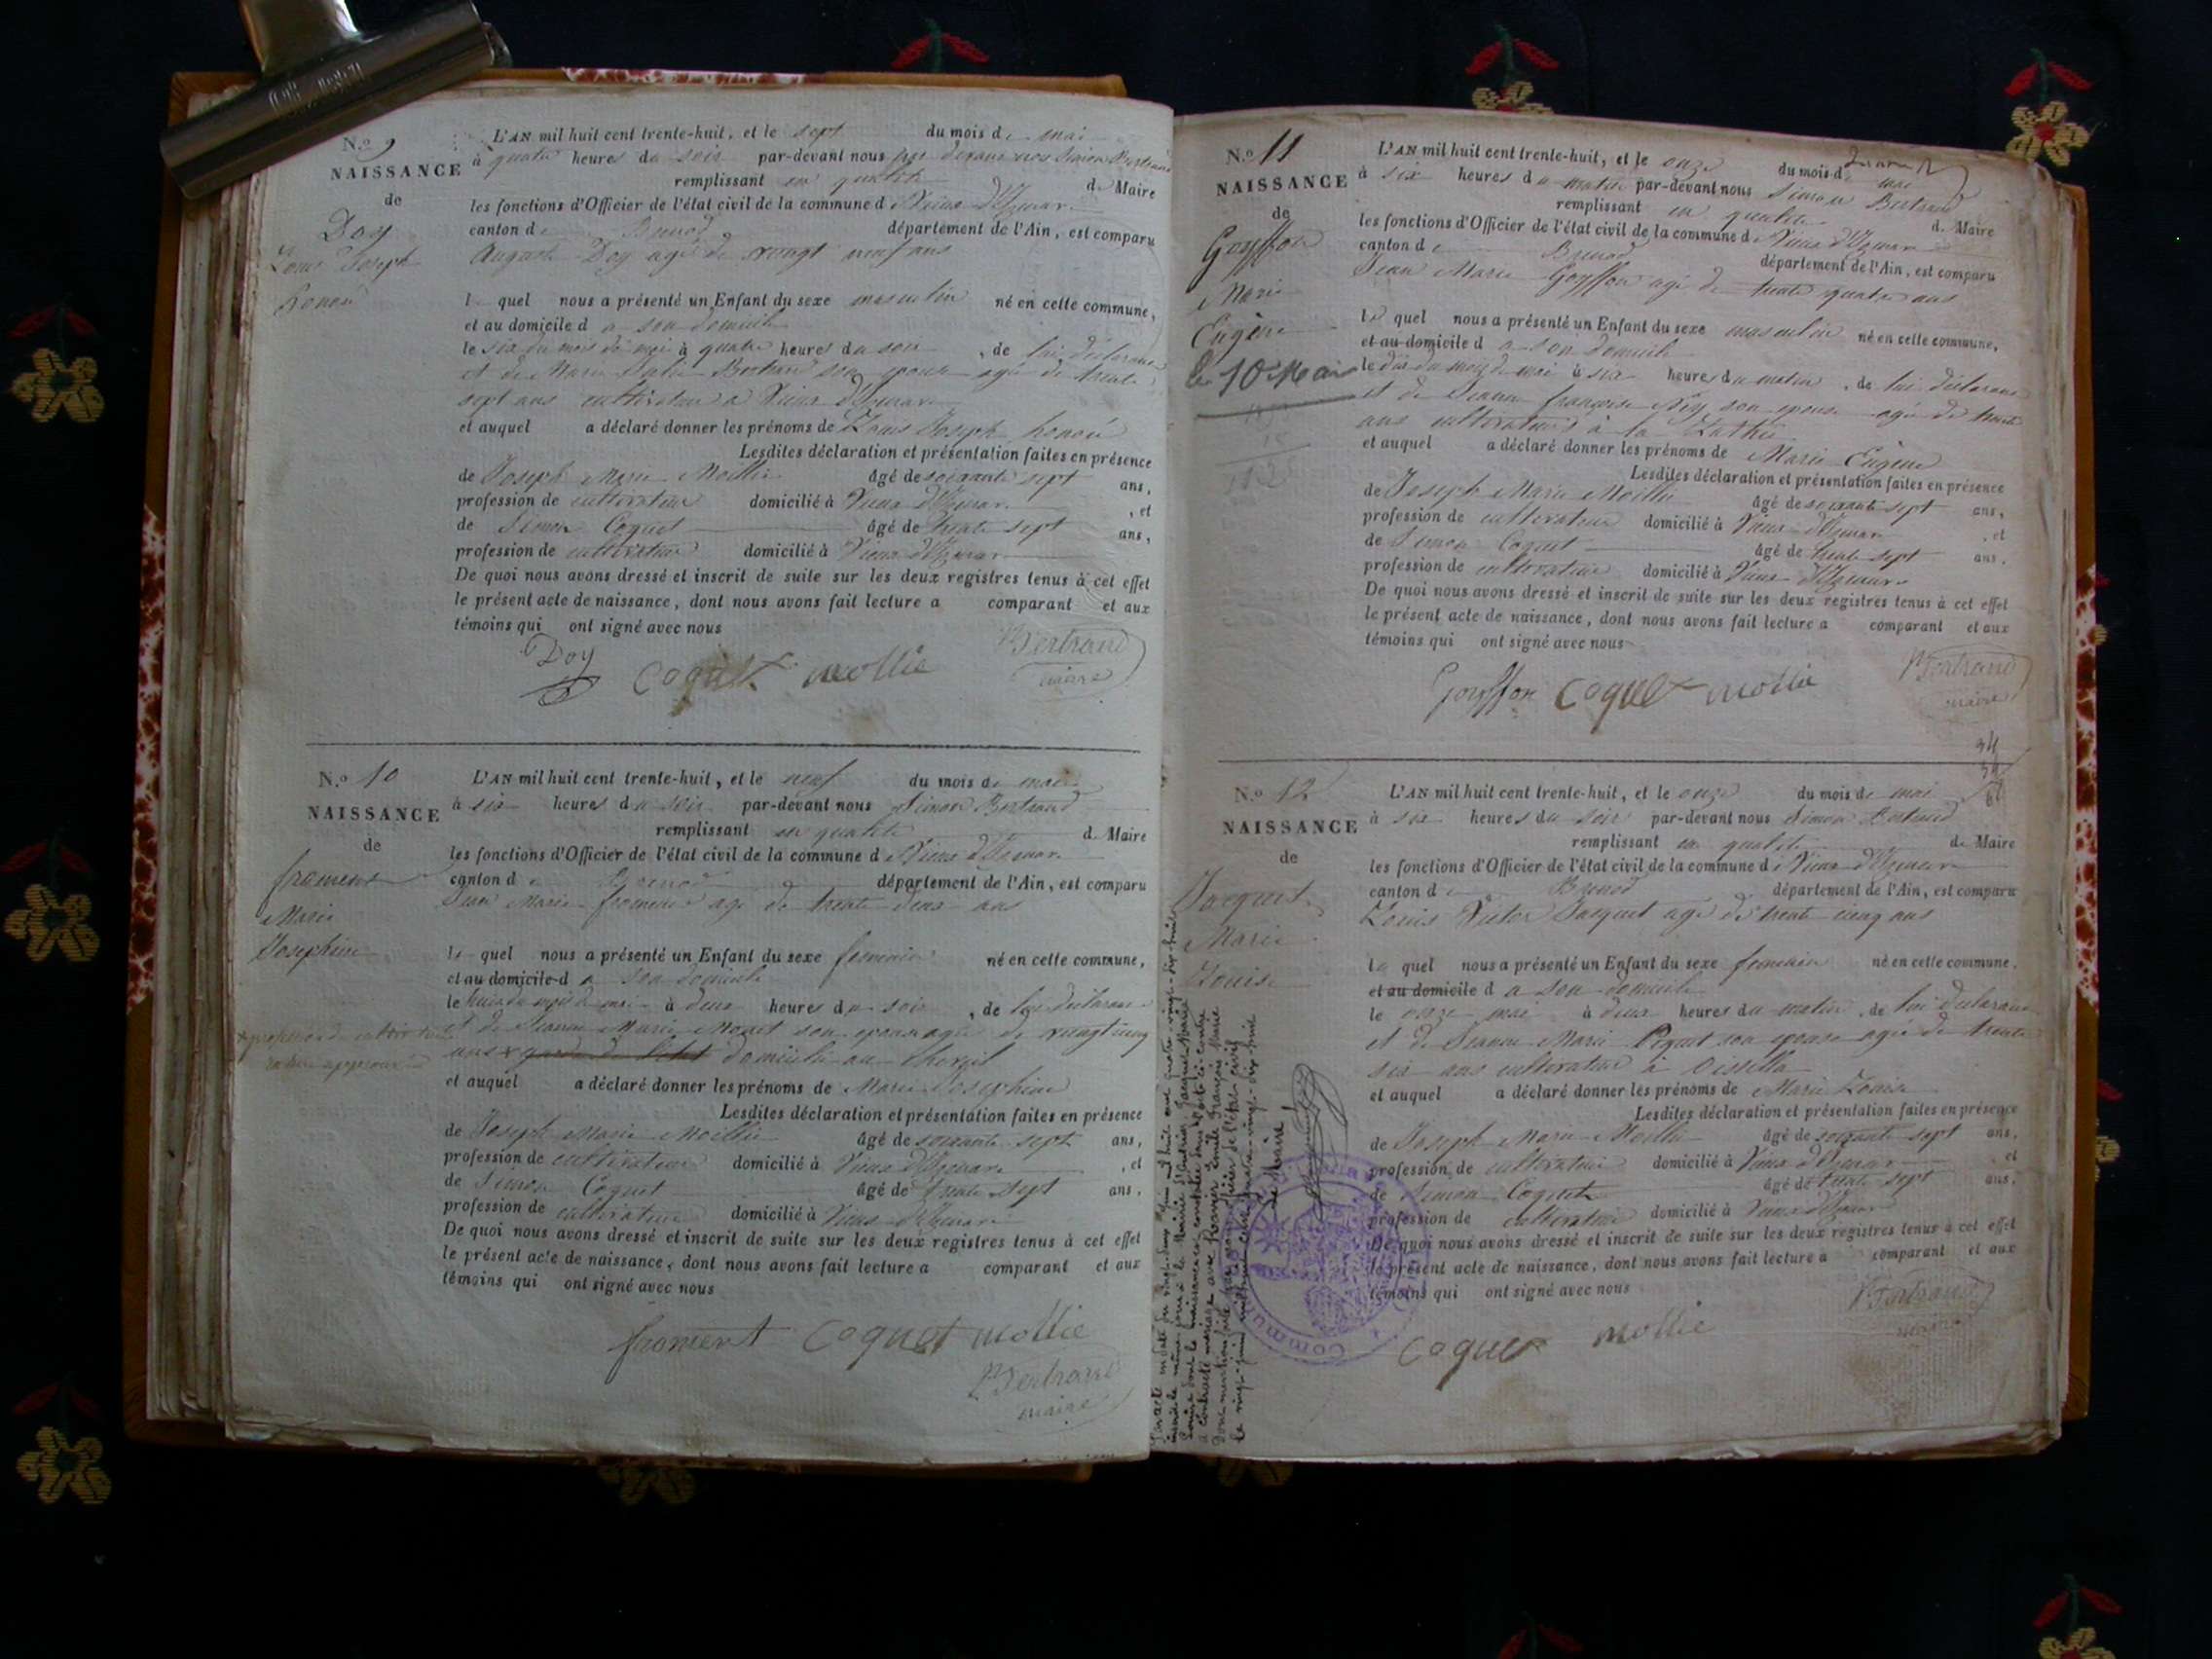 N.o 9
NAISSANCE
de
Doy
Louis Joseph
honoré
L'AN mil huit cent trente-huit, et le sept du mois de mai
à quatre heures du soir par-devant nous par devant nous Simon Bertrand
remplissant en qualité de Maire
les fonctions d'Officier de l'état civil de la commune de Vieux d'Izenave
canton de Brenod département de l'Ain, est comparu
Auguste Doy agé de vingt neuf ans
le quel nous a présenté un Enfant du sexe masculin né en cette commune,
et au domicile d a son domicile
le six du mois de mai à quatre heures du soir, de lui déclarant
et de Marie Bertrand son epouse agée de trente
sept ans cultivateur a Vieux d'Izenave
et auquel a déclaré donner les prénoms de Louis Joseph honoré
Lesdites déclaration et présentation faites en présence
de Joseph Marie Mollie âgé de soixante sept ans,
profession de cultivateur domicilié à Vieux d'Izenave, et
de Simon Coquet âgé de trente sept ans,
profession de cultivateur domicilié à Vieux d'Izenave
De quoi nous avons dressé et inscrit de suite sur les deux registres tenus à cet effet
le présent acte de naissance, dont nous avons fait lecture a comparant et aux
témoins qui ont signé avec nous
Doy Coquet Mollie Bertrand
maire
N.o 10
NAISSANCE
de
froment
Marie
Josephine
L'AN mil huit cent trente-huit, et le neuf du mois de mai
à six heures du soir par-devant nous Simon Bertrand
remplissant en qualité de Maire
les fonctions d'Officier de l'état civil de la commune de Vieux d'Izenave
canton de Brenod département de l'Ain, est comparu
Jean Marie froment agé de trente deux ans
le quel nous a présenté un Enfant du sexe feminin né en cette commune,
et au domicile d a son domicile
le huit du mois de mai à deux heures du soir, de lui déclarant
et de Jeanne Marie Monet son epouse agée de vingt cinq
ans domicilié au
profession de cultivateur
approuvé
et auquel a déclaré donner les prénoms de Marie Josephine
Lesdites déclaration et présentation faites en présence
de Joseph Marie Mollie âgé de soixante sept ans,
profession de cultivateur domicilié à Vieux d'Izenave, et
de Simon Coquet âgé de trente sept ans,
profession de cultivateur domicilié à Vieux d'Izenave
De quoi nous avons dressé et inscrit de suite sur les deux registres tenus à cet effet
le présent acte de naissance, dont nous avons fait lecture a comparant et aux
témoins qui ont signé avec nous
froment Coquet Mollie
Bertrand
maire
N.o 11
NAISSANCE
de
Goyffon
Marie
Eugène
le 10 Mai
L'AN mil huit cent trente-huit, et le onze du mois de mai
à six heures du matin par-devant nous Simon Bertrand
remplissant en qualité de Maire
les fonctions d'Officier de l'état civil de la commune de Vieux d'Izenave
canton de Brenod département de l'Ain, est comparu
Jean Marie Goyffon agé de trente quatre ans
le quel nous a présenté un Enfant du sexe masculin né en cette commune,
et au domicile d a son domicile
le dix du mois de mai à six heures du matin, de lui déclarant
et de Jeanne françoise son epouse agée de trente
ans cultivateurs à
et auquel a déclaré donner les prénoms de Marie Eugène
Lesdites déclaration et présentation faites en présence
de Joseph Marie Mollie âgé de soixante sept ans,
profession de cultivateur domicilié à Vieux d'Izenave, et
de Simon Coquet âgé de trente sept ans.
profession de cultivateur domicilié à Vieux d'Izenave
De quoi nous avons dressé et inscrit de suite sur les deux registres tenus à cet effet
le présent acte de naissance, dont nous avons fait lecture a comparant et aux
témoins qui ont signé avec nous
Goyffon Coquet Mollie Bertrand
maire
34
34
68
N.o 12
NAISSANCE
de
Jacquet
Marie
Louise
L'AN mil huit cent trente-huit, et le onze du mois de mai
à six heures du soir par-devant nous Simon Bertrand
remplissant en qualité de Maire
les fonctions d'Officier de l'état civil de la commune de Vieux d'Izenave
canton de Brenod département de l'Ain, est comparu
Louis Victor Jacquet agé de trente cinq ans
le quel nous a présenté un Enfant du sexe feminin né en cette commune,
et au domicile d a son domicile
le onze mai à deux heures du matin, de lui déclarant
et de Jeanne Marie son epouse agée de trente
six ans cultivateur à Oisselaz
et auquel a déclaré donner les prénoms de Marie Louise
Lesdites déclaration et présentation faites en présence
de Joseph Marie Mollie âgé de soixante sept ans,
profession de cultivateur domicilié à Vieux d'Izenave et
de Simon Coquet âgé de trente sept ans,
profession de cultivateur domicilié à Vieux d'Izenave
De quoi nous avons dressé et inscrit de suite sur les deux registres tenus à cet effet
le présent acte de naissance, dont nous avons fait lecture a comparant et aux
témoins qui ont signé avec nous
Coquet Mollie Bertrand
maire
Par acte en date du vingt-deux juin mil huit cent quatre-vingt-dix-huit
inscrit le même jour à la Mairie Jacquet Marie
Louise dont la naissance est constatée dans l'acte ci-contre
a contracté mariage avec François Marie
Dont mention faite par nous officier de l'état civil
le vingt juin mil huit cent quatre-vingt-dix-huit
Le Maire
Commune